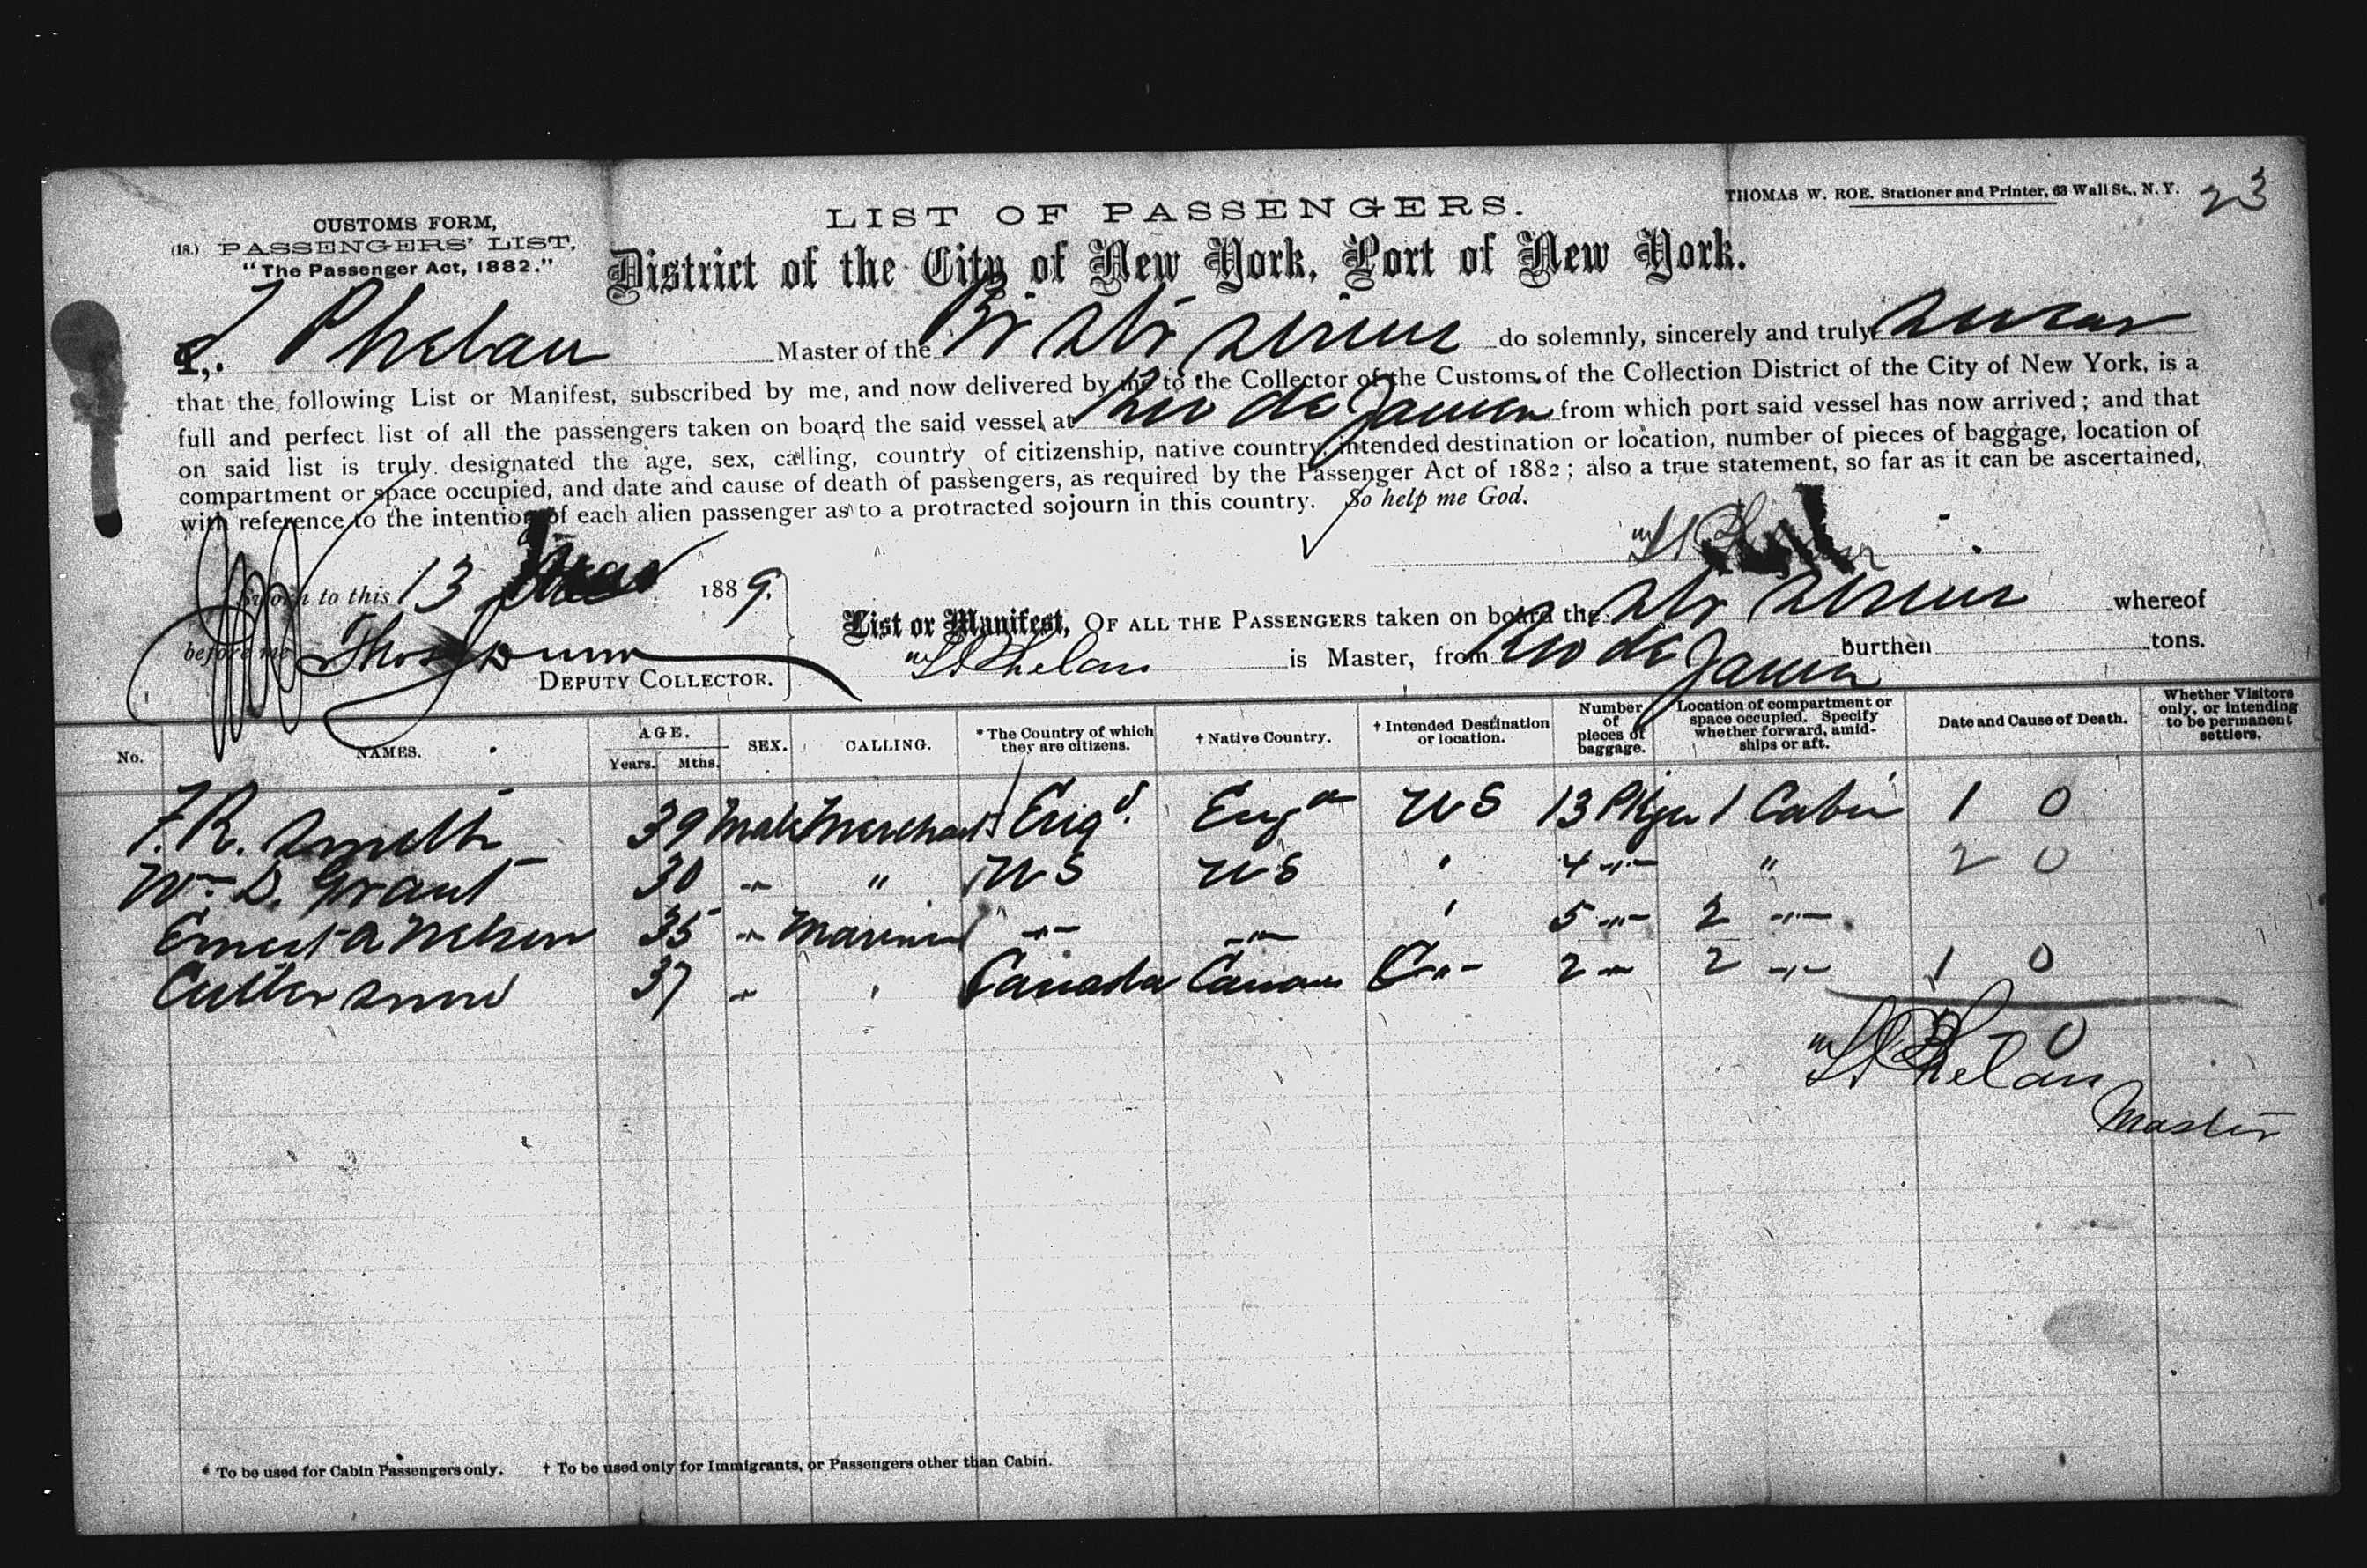 THOMAS W. ROE. Stationer and Printer, 63 Wall St., N. Y. 23
CUSTOMS FORM,
(18.) PASSENGERS' LIST,
"The Passenger Act, 1882."
LIST OF PASSENGERS.
District of the City of New York, Port of New York.
I, Phelan Master of the Br Str Sirius do solemnly, sincerely and truly swear
that the following List or Manifest, subscribed by me, and now delivered by me to the Collector of the Customs of the Collection District of the City of New York, is a
full and perfect list of all the passengers taken on board the said vessel at Rio de Janeiro from which port said vessel has now arrived; and that
on said list is truly designated the age, sex, calling, country of citizenship, native country, intended destination or location, number of pieces of baggage, location of
compartment or space occupied, and date and cause of death of passengers, as required by the Passenger Act of 1882; also a true statement, so far as it can be ascertained,
with reference to the intention of each alien passenger as to a protracted sojourn in this country. So help me God.
Sworn to this 13 1889.
before me Thos Dunn
DEPUTY COLLECTOR.
List or Manifest, OF ALL THE PASSENGERS taken on board the Str Sirius whereof
Phelan is Master, from Rio de Janeiro burthen tons.
No. NAMES. AGE. Years. Mths. SEX. CALLING. * The Country of which they are citizens. † Native Country. † Intended Destination or location. Number of pieces of baggage. Location of compartment or space occupied. Specify whether forward, amid-ships or aft. Date and Cause of Death. Whether Visitors only, or intending to be permanent settlers.
F. R. Smith 39 Male Merchant Engd. Eng US 13 Pkgs 1 Cabin 1 0
Wm D. Grant 30 " " US US " 4 " " 2 0
Ernest A Nelson 35 " Mariner " " " 5 " 2 "
Cutler 37 " " Canada Canada C " 2 " 2 " 1 0
0
Phelan
Master
* To be used for Cabin Passengers only. † To be used only for Immigrants, or Passengers other than Cabin.